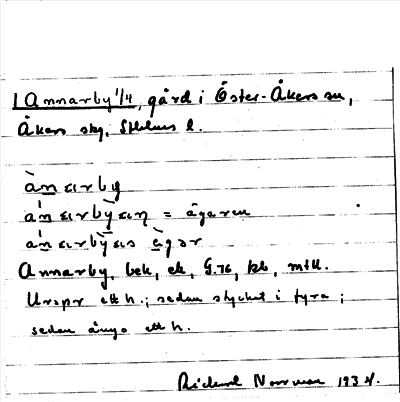 1 Annarby 1/4, gård i Öster-Åkers sn,
Åkers skg, Sthlms l.
àn ɛɩrby
án ɛɩrbỳ ɛɩn = ägaren
án ɛɩrbỳ ɛɩs ägər
Annarby, bek, ek, G.76, kb, mtl.
Urspr ett h.; sedan stycket i fyra;
sedan ånyo ett h.
Rickard Norrman 1934.